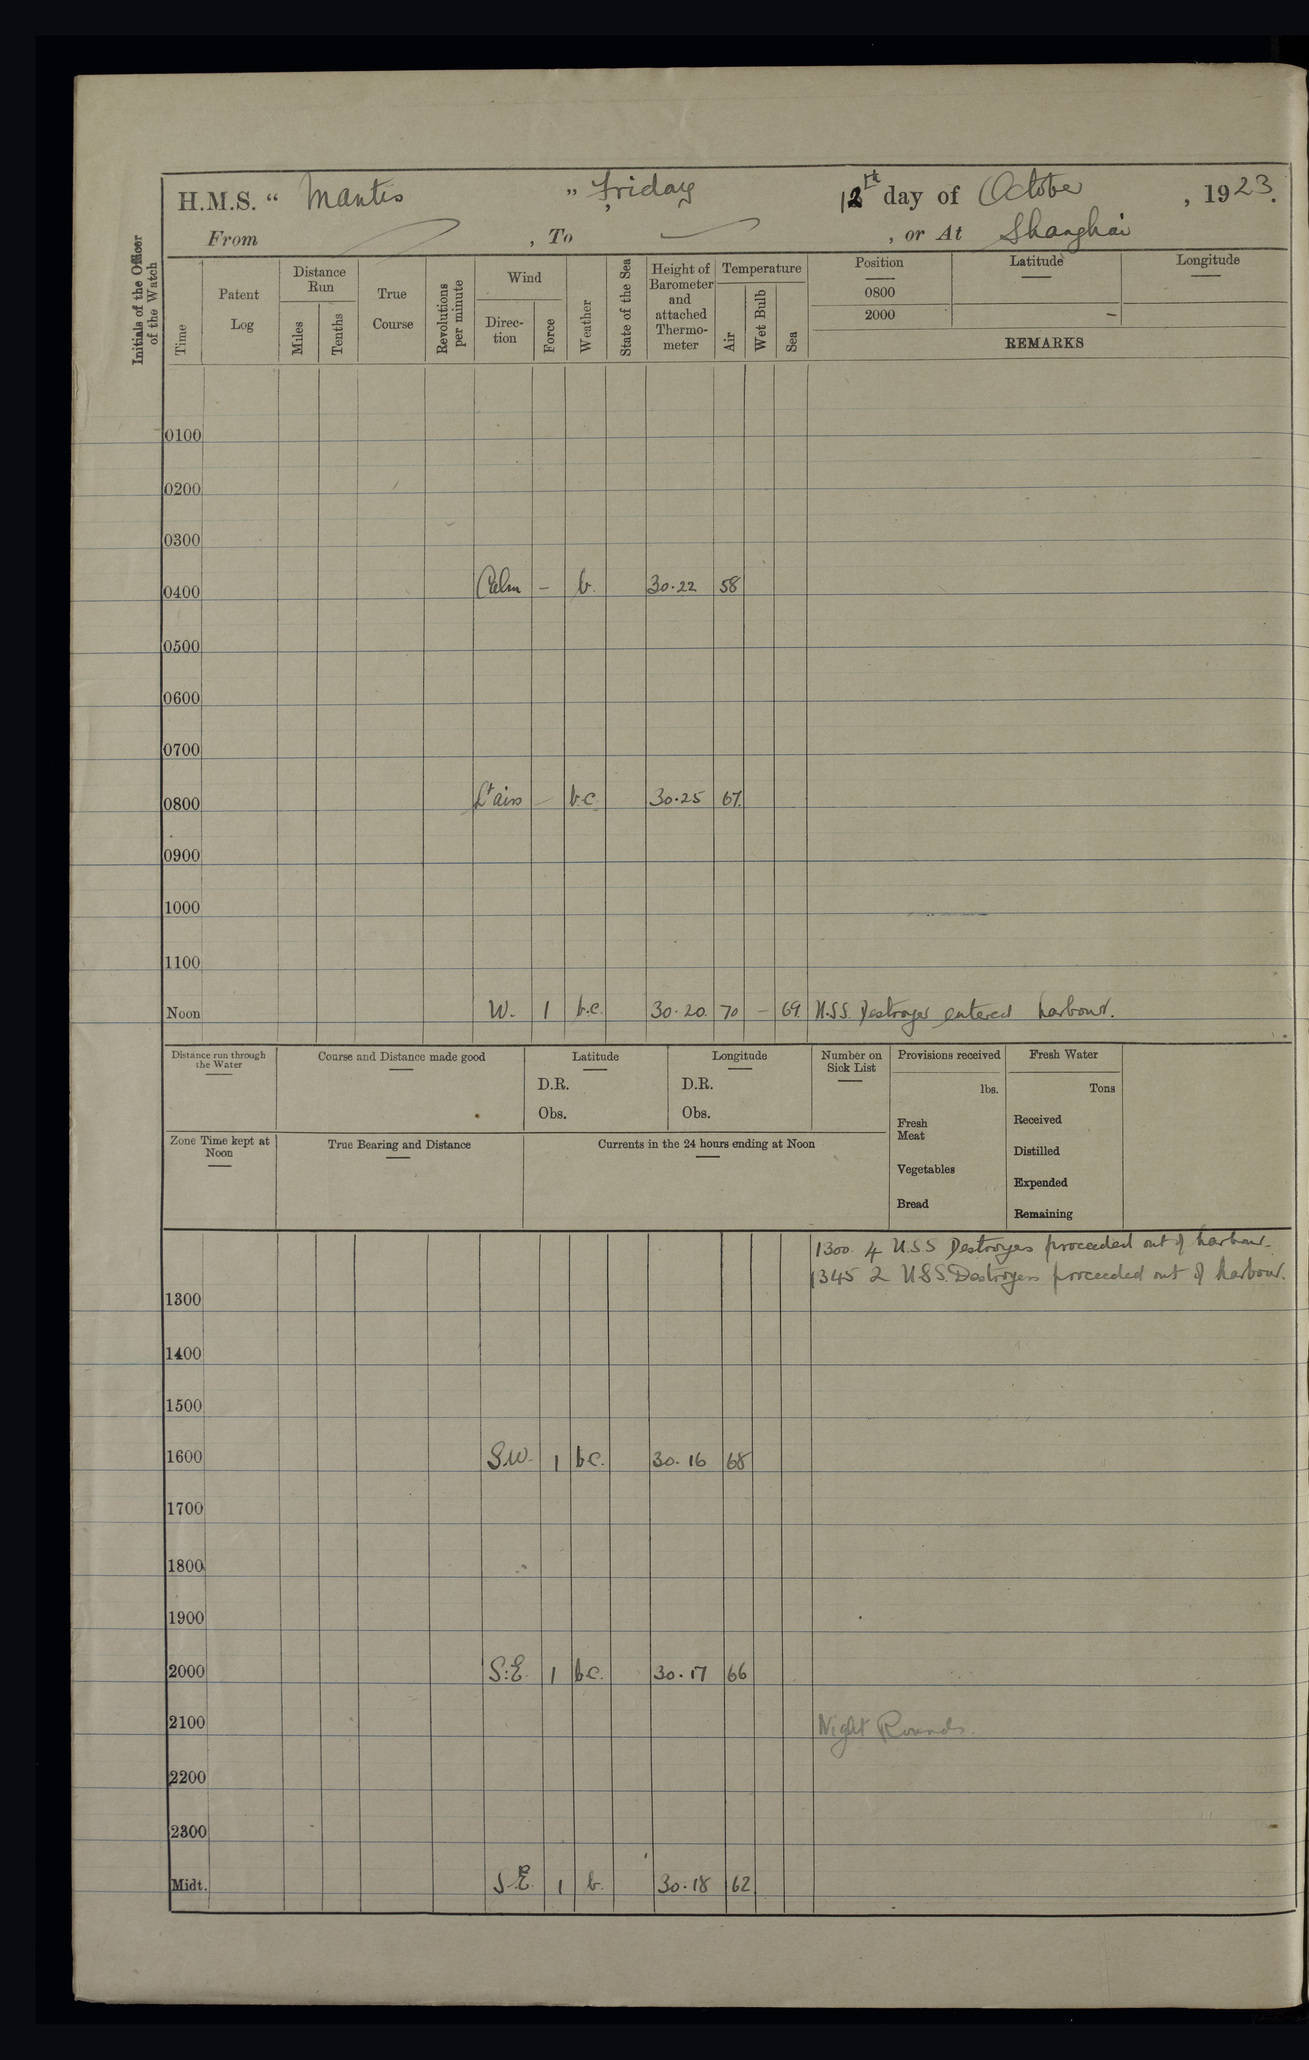 H.M.S. “ Mantis ” Friday 12th day of October , 1923.
From , To , or At Shanghai
Initials of the Officer of the Watch
Time
Patent Log
Distance Run
Miles
Tenths
True Course
Revolutions per minute
Wind
Direc-tion
Force
Weather
State of the Sea
Height of Barometer and attached Thermo-meter
Temperature
Air
Wet Bulb
Sea
Position Latitude Longitude
0800
2000 –
REMARKS
0100
0200
0300
0400 Calm – b. 30.22 58
0500
0600
0700
0800 Lt airs – b.c. 30.25 67.
0900
1000
1100
Noon W. 1 b.c. 30.20. 70 – 69. U.S.S. Destroyer entered harbour.
Distance run through the Water
Course and Distance made good
Latitude
D.R.
Obs.
Longitude
D.R.
Obs.
Number on Sick List
Provisions received
lbs.
Fresh Meat
Vegetables
Bread
Fresh Water
Tons
Received
Distilled
Expended
Remaining
Zone Time kept at Noon
True Bearing and Distance
Currents in the 24 hours ending at Noon
1300. 4 U.S.S Destroyers proceeded out of harbour.
1345 2 U.S.S. Destroyers proceeded out of harbour.
1300
1400
1500
1600 S.W. 1 b.c. 30.16 68
1700
1800
1900
2000 S.E. 1 b.c. 30.17 66
2100 Night Rounds.
2200
2300
Midt. S.E. 1 b. 30.18 62